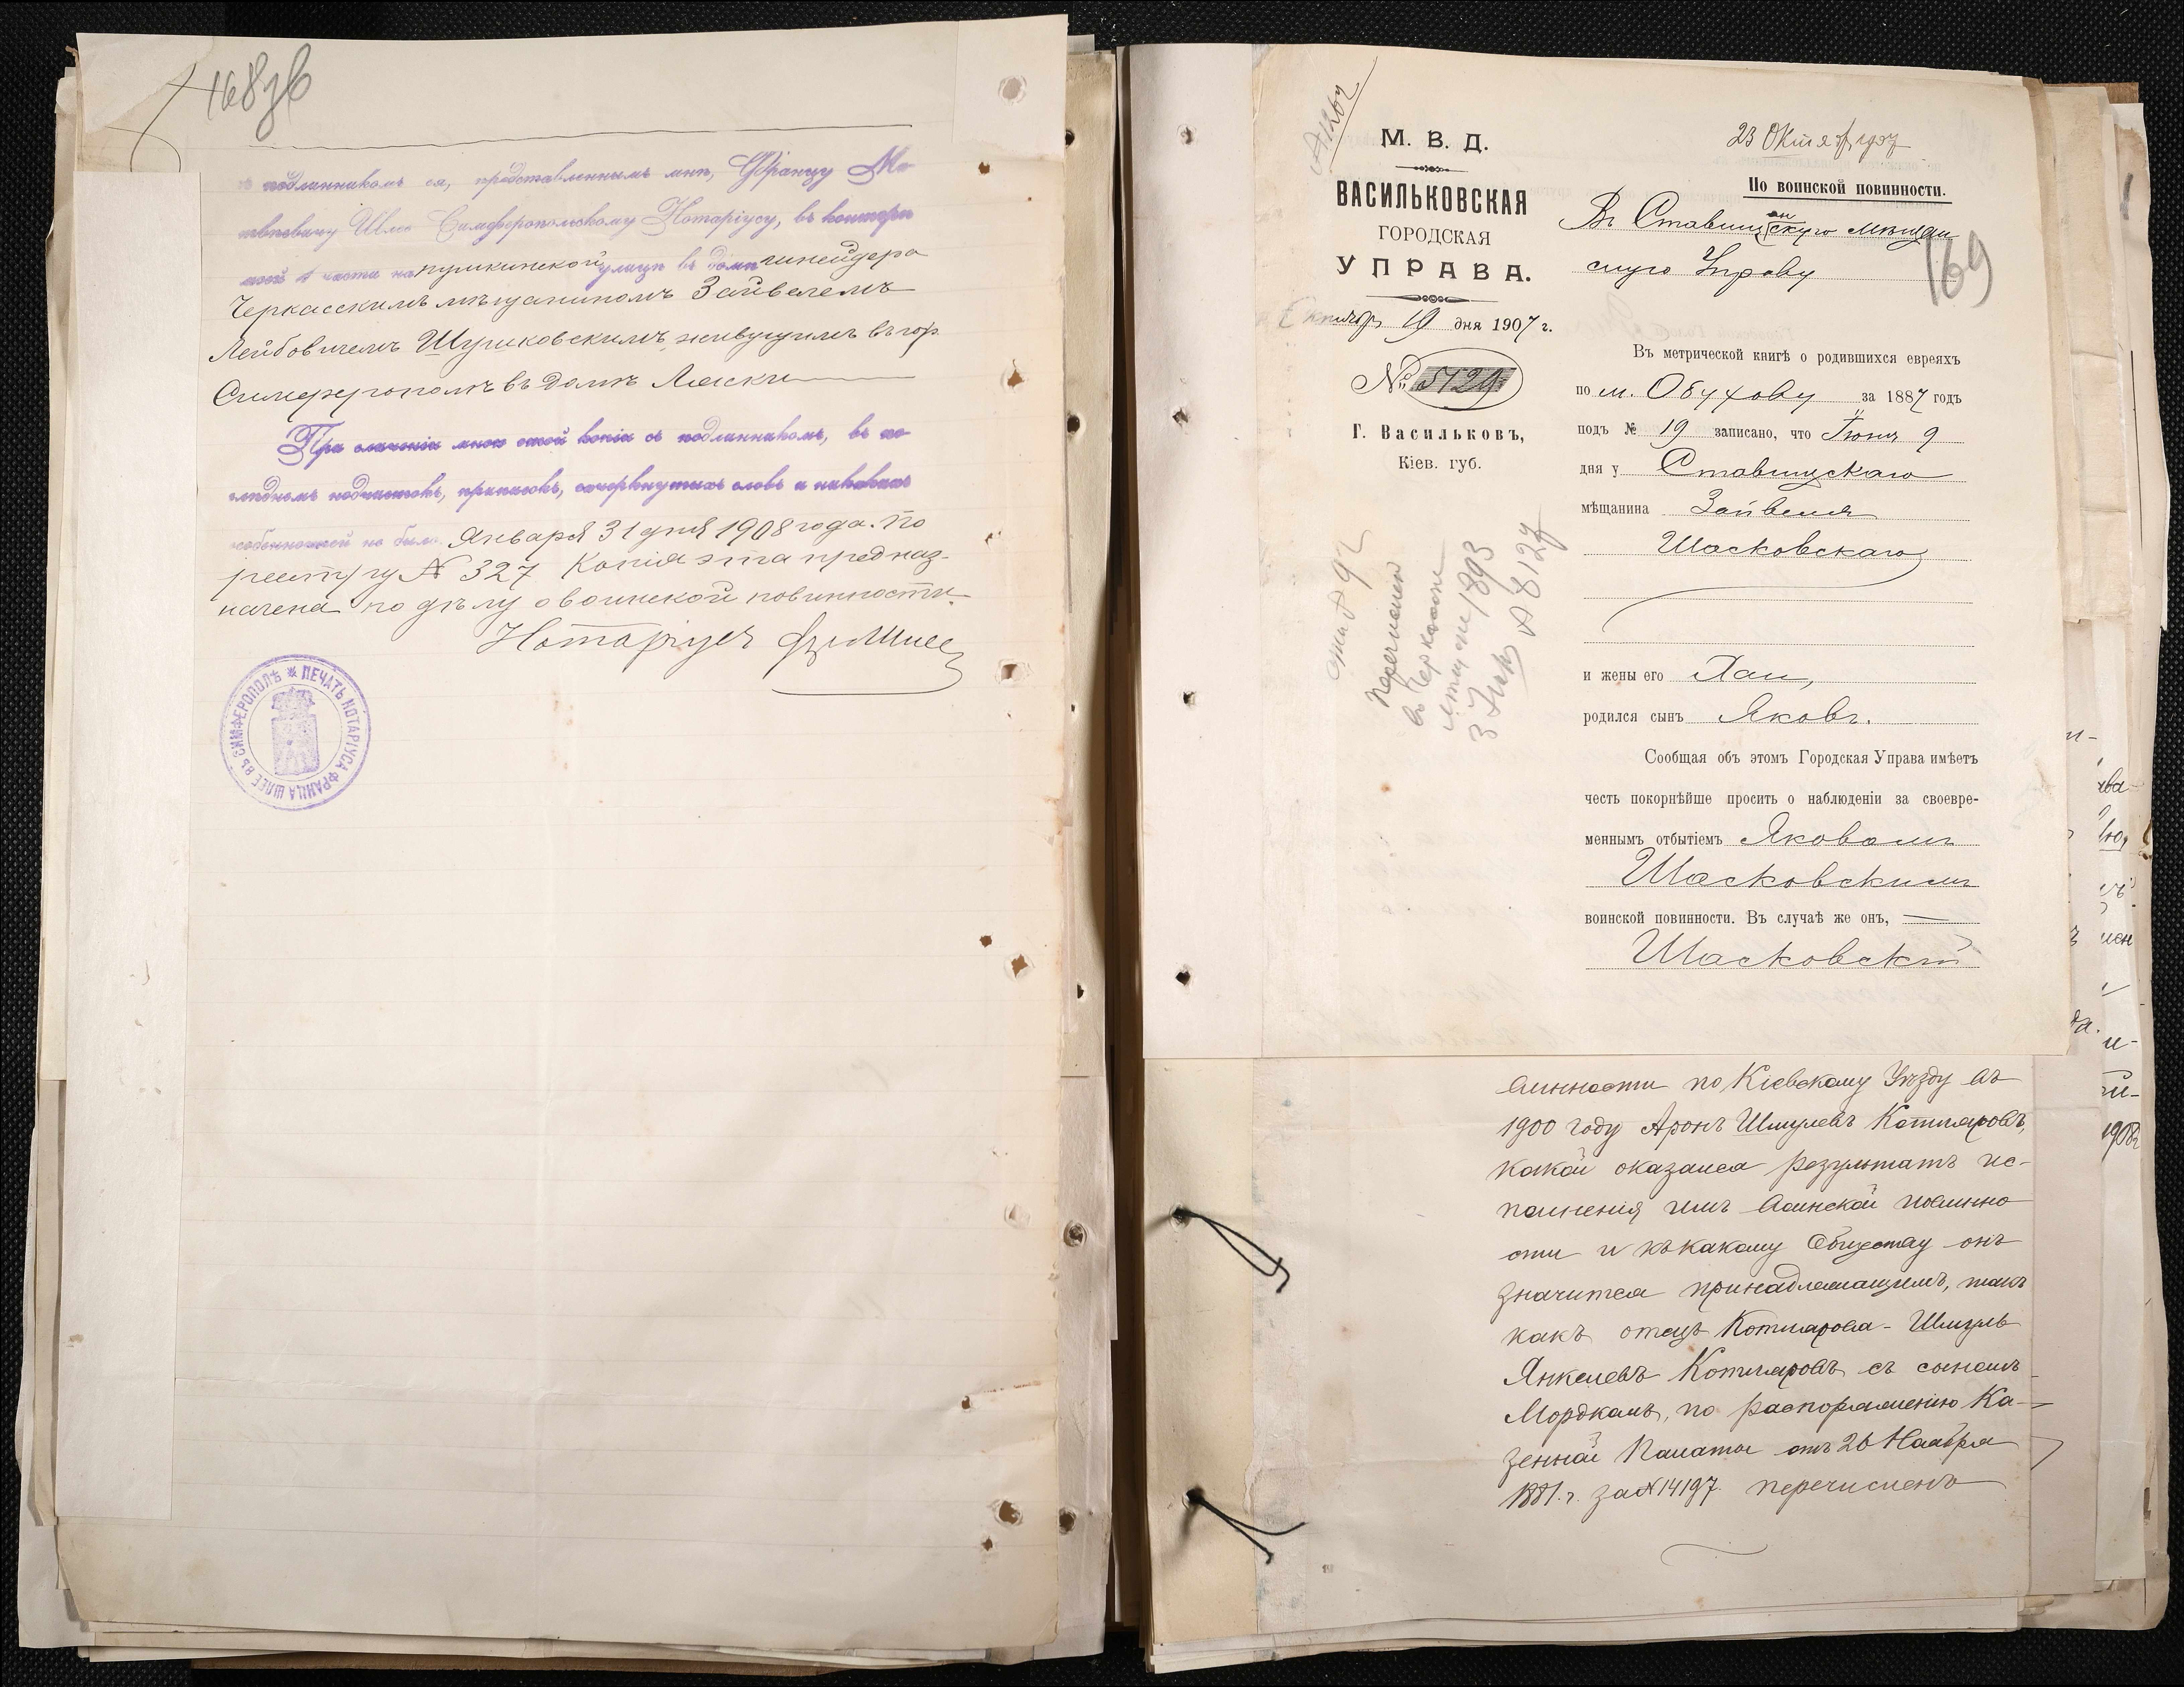 168 об
подлинникомъ ея, представленнымъ мнѣ, Францу Ма-
твѣевичу Шлее Симферопольскому Нотаріусу, въ конторѣ
моей 1 части на пушкинской улицѣ въ домѣ шнейдера
Черкасскимъ мѣщаниномъ Зайвелемъ
Лейбовичемъ Шушковскимъ, живущимъ въ гор
Симферополѣ въ домѣ
При сличеніи мною этой копіи съ подлинникомъ, въ по-
слѣднемъ подчистокъ, приписокъ, зачеркнутыхъ словъ и никакихъ
особенностей не было. Января 31 дня 1908 года. По
реестру № 327 Копія эта предназ-
начена по дѣлу о воинской повинности.
Нотаріусъ Фр Шлее
ПЕЧАТЬ НОТАРІУСА ФРАНЦА ШЛЕЕ ВЪ СИМФЕРОПОЛѢ
М. В. Д.
ВАСИЛЬКОВСКАЯ
ГОРОДСКАЯ
УПРАВА.
Октября 19 дня 1907 г.
№ 5129
Г. Васильковъ,
Кіев. губ.
Перечислен
въ Черкассы
1893
№ 8127
23 Октя 1907
По воинской повинности.
169
Въ Ставищанскую мѣщан
скую Управу
Въ метрической книгѣ о родившихся евреяхъ
по м. Обухову за 1887 годъ
подъ № 19 записано, что Іюня 9
дня у Ставищскаго
мѣщанина Зайвеля
Шасковскаго
и жены его Хаи,
родился сынъ Яковъ.
Сообщая объ этомъ Городская Управа имѣетъ
честь покорнѣйше просить о наблюденіи за своевре-
меннымъ отбытіемъ Яковомъ
Шасковскимъ
воинской повинности. Въ случаѣ же онъ, —
Шасковскій
винности по Кіевскому Уѣзду въ
1900 году Аронъ Шмулевъ Котляровъ,
какой оказался результатъ ис-
полненія имъ воинской повинно
сти и къ какому Обществу онъ
значится принадлежащимъ, такъ
какъ отецъ Котлярова - Шмуль
Янкелевъ Котляровъ съ сыномъ
Мордкомъ, по распоряженію Ка-
зенной Палаты отъ 26 Ноября
1881 г. за № 14197 перечисленъ